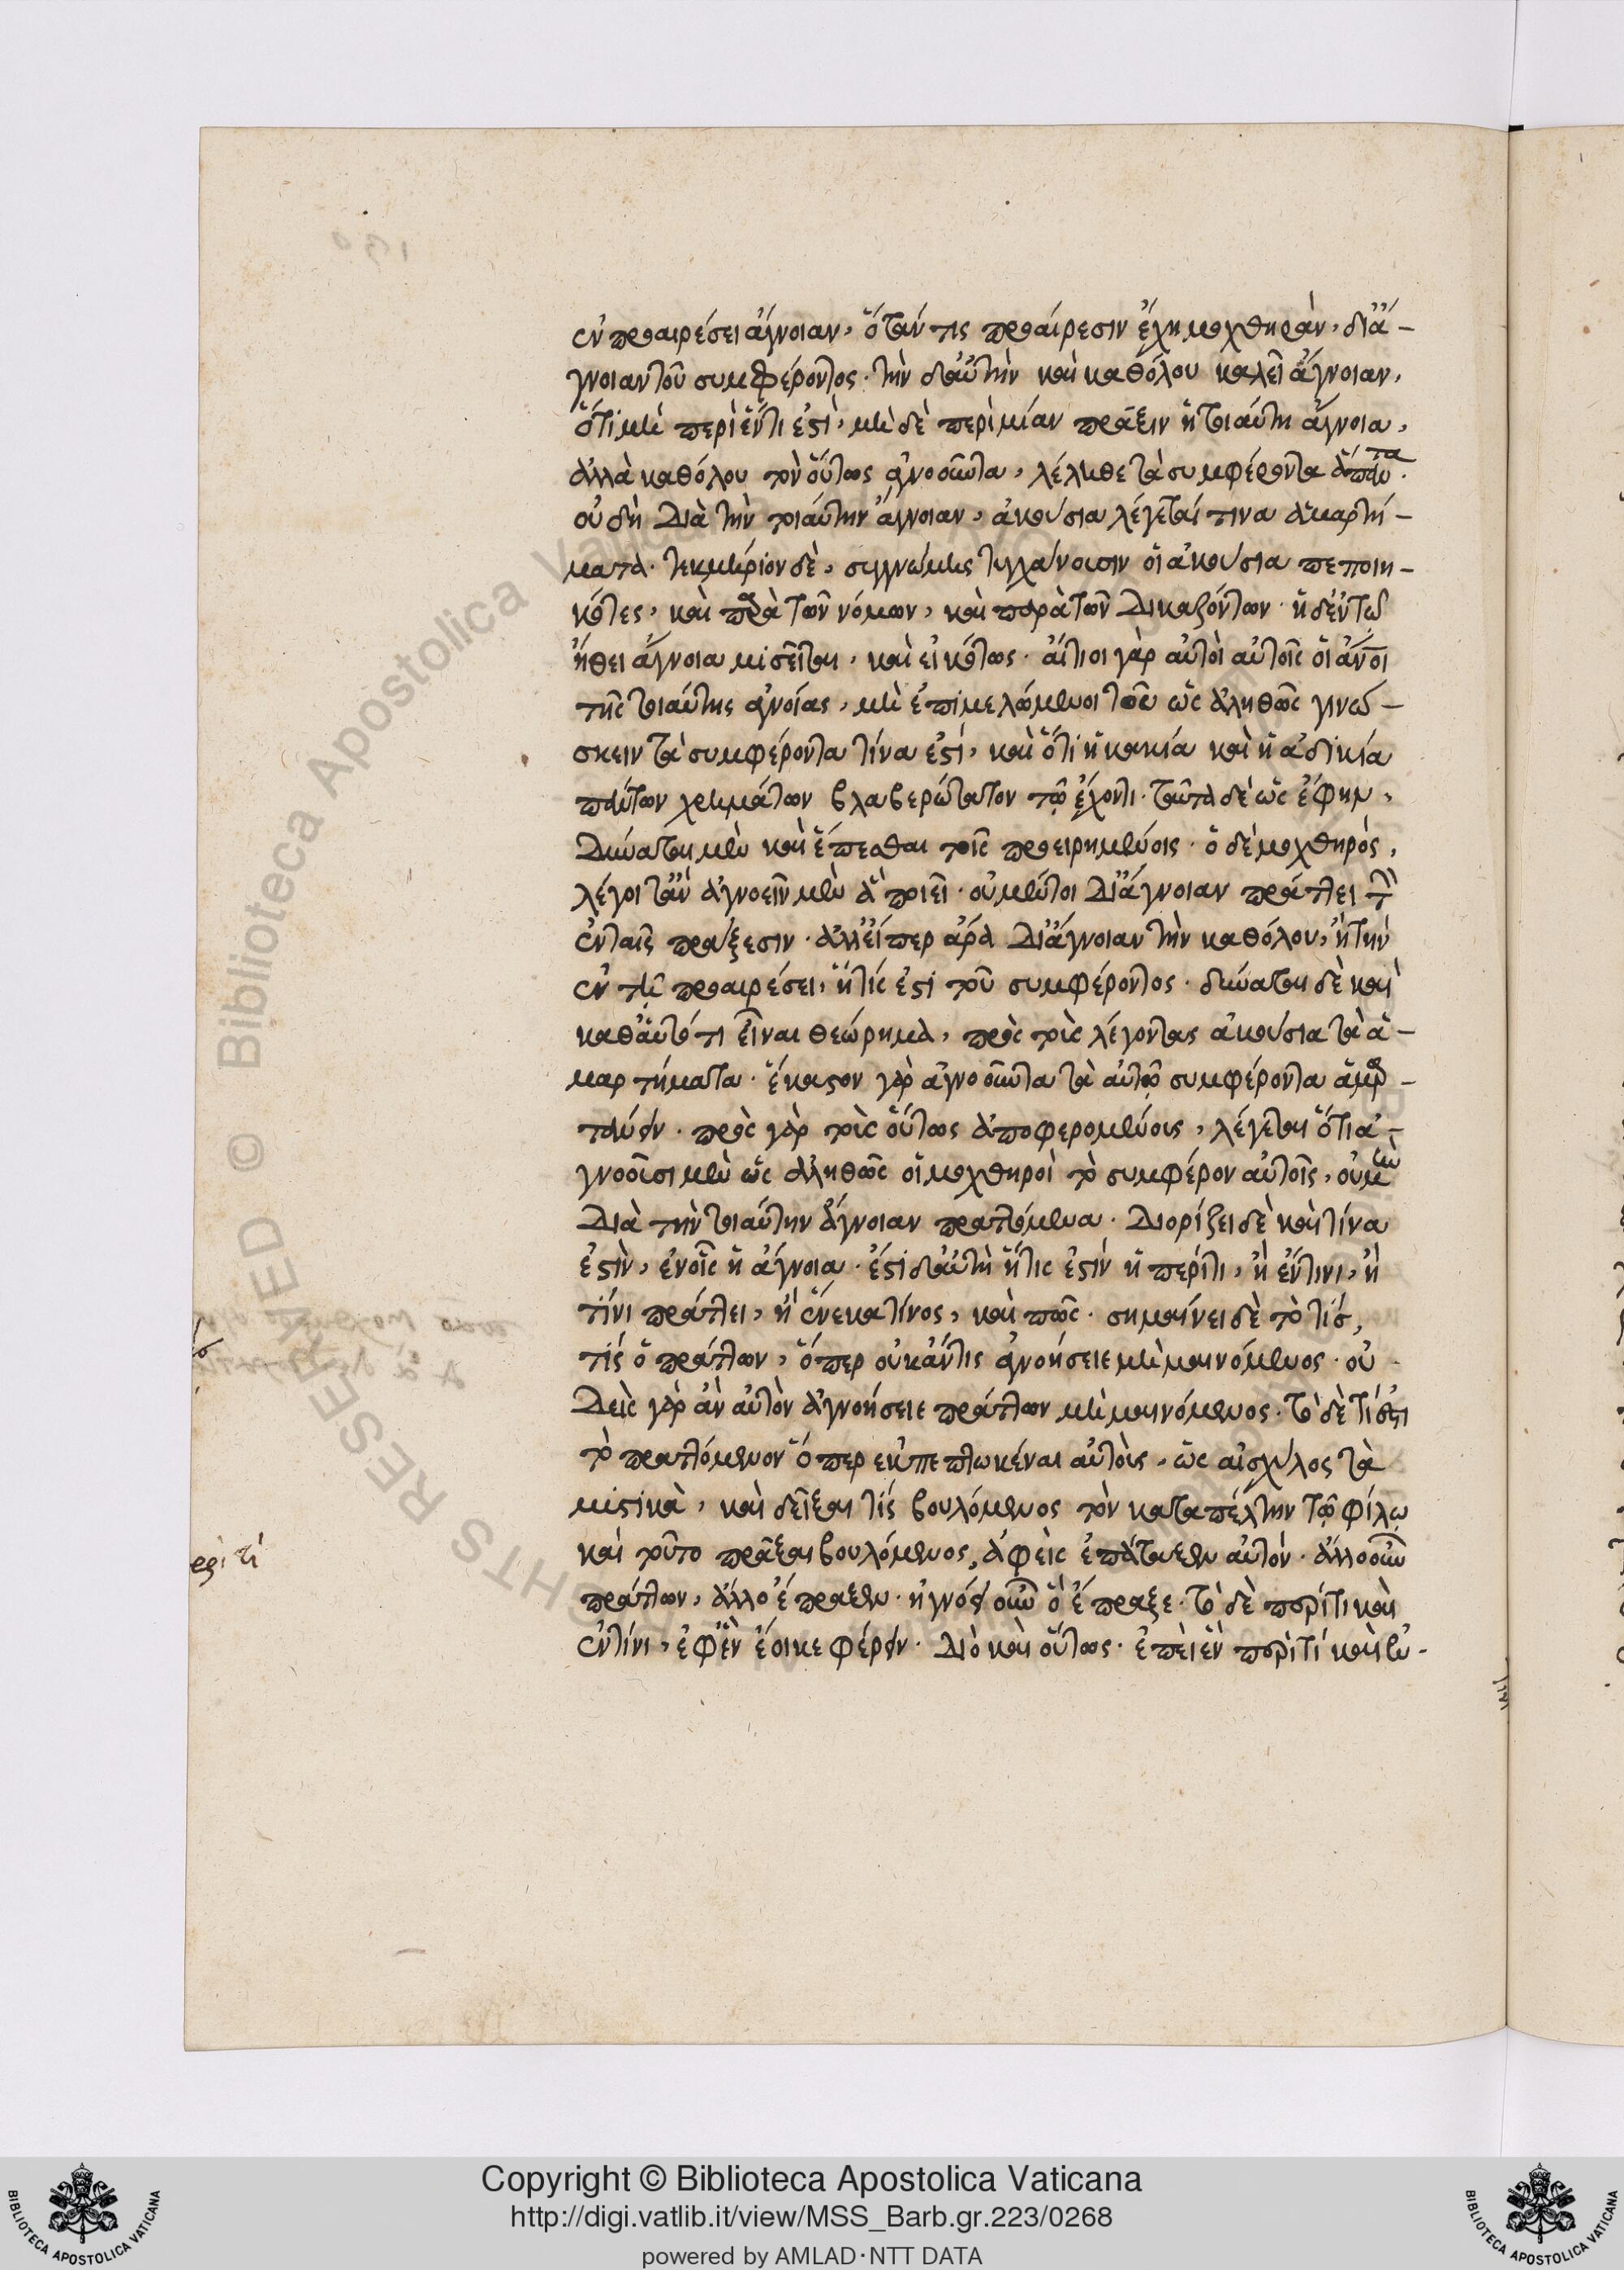 ἐν προαιρέσει ἄγνοιαν, ὅταν τις προαίρεσιν ἔχῃ μοχθηρὰν, διἄ-
γνοιαν τοῦ συμφέροντος. τὴν δ' αὐτὴν καὶ καθόλου καλεῖ ἄγνοιαν,
ὅτι μὴ περὶ ἕν τι ἐστὶ, μὴ δὲ περὶ μίαν πρᾶξιν ἡ τοιαύτη ἄγνοια,
ἀλλὰ καθόλου τὸν οὕτως ἀγνοοῦντα, λέληθε τὰ συμφέροντα ἅπαντα.
οὐ δὴ διὰ τὴν τοιαύτην ἄγνοιαν, ἀκούσια λέγεταί τινα ἁμαρτή-
ματα. τεκμήριον δὲ, συγγνώμης τυγχάνουσιν οἱ ἀκούσια πεποιη-
κότες, καὶ παρὰ τῶν νόμων, καὶ παρὰ τῶν δικαζόντων. ἡ δ' ἐν τῷ
ἤθει ἄγνοια μισεῖται, καὶ εἰκότως. αἴτιοι γὰρ αὐτοὶ αὑτοῖς οἱ ἄνοι
τῆς τοιαύτης ἀγνοίας, μὴ ἐπιμελόμενοι τοῦ ὡς ἀληθῶς γινώ-
σκειν τὰ συμφέροντα τίνα ἐστί, καὶ ὅτι ἡ κακία καὶ ἡ ἀδικία
πάντων χρημάτων βλαβερώτατον τῷ ἔχοντι. ταῦτα δὲ ὡς ἔφην,
δύναται μὲν καὶ ἕπεσθαι τοῖς προειρημένοις. ὁ δὲ μοχθηρὸς,
λέγοιτ' ἂν ἀγνοεῖν μὲν ἃ ποιεῖ. οὐ μέντοι δι' ἄγνοιαν πράττει τὰ
ἐν ταῖς πράξεσιν. ἀλλ' εἴπερ ἄρα δι' ἄγνοιαν τὴν καθόλου, ἢ τὴν
ἐν τῇ προαιρέσει, ἥτις ἐστὶ τοῦ συμφέροντος. δύναται δὲ καὶ
καθ' αὑτό τι εἶναι θεώρημα, πρὸς τοὺς λέγοντας ἀκούσια τὰ ἁ-
μαρτήματα. ἕκαστον γὰρ ἀγνοοῦντα τὰ αὑτῷ συμφέροντα ἁμαρ-
τάνειν. πρὸς γὰρ τοὺς οὕτως ἀποφερομένους, λέγεται ὅτι ἀ-
γνοοῦσι μὲν ὡς ἀληθῶς οἱ μοχθηροὶ τὸ συμφέρον αὑτοῖς, οὐ μὴν
διὰ τὴν τοιαύτην ἄγνοιαν πραττόμενα. διορίζει δὲ καὶ τίνα
ἐστὶν, ἐν οἷς ἡ ἄγνοια. ἔστι δ' αὐτὴ ἥτις ἐστὶν ἢ περί τι, ἢ ἔν τινι, ἢ
τίνι πράττει, ἢ ἕνεκα τίνος, καὶ πῶς. σημαίνει δὲ τὸ τίς,
τίς ὁ πράττων, ὅπερ οὐκ ἄν τις ἀγνοήσειε μὴ μαινόμενος. οὐ-
δεὶς γὰρ ἂν αὑτὸν ἀγνοήσειε πράττων μὴ μαινόμενος. τὸ δὲ τί ἐστι
τὸ πραττόμενον ὅπερ ἐκπεπτωκέναι αὐτοὺς, ὡς αἰσχύλος τὰ
μυστικὰ, καὶ δεῖξαι τίς βουλόμενος τὸν καταπέλτην τῷ φίλῳ
καὶ τοῦτο πρᾶξαι βουλόμενος, ἀφεὶς ἐπάταξεν αὐτόν. ἄλλο οὖν
πράττων, ἄλλο ἔπραξεν. ἠγνόει οὖν ὃ ἔπραξε. τὸ δὲ περί τι καὶ
ἐν τίνι, ἐφ' ἓν ἔοικε φέρειν. διὸ καὶ οὕτως. ἐπεὶ ἓν περί τι καὶ ἐν
ερί τί